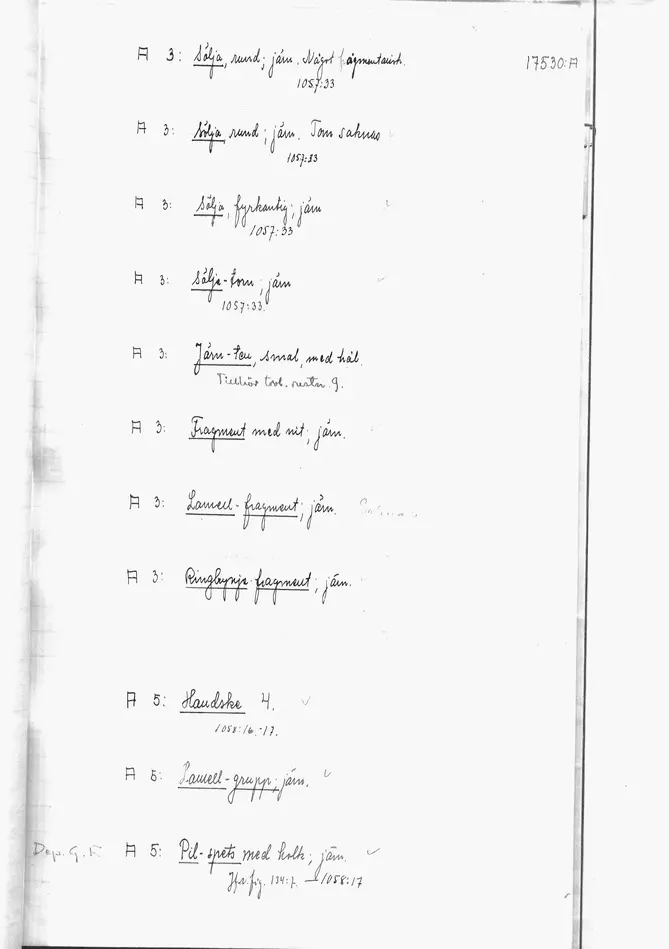 17530:A
A 3: Sölja, rund; järn. Något fragmentarisk.
1057:33
A 3: Sölja, rund; järn. Torn saknas
1057:33
A 3: Sölja, fyrkantig; järn
1057:33
A 3: Sölje-torn; järn
1057:33.
A 3: Järn-ten, smal, med hål.
Tillhör 9.
A 3: Fragment med nit; järn.
A 3: Lamell-fragment; järn.
A 3: Ringbrynje-fragment; järn.
A 5: Handske 4. ✓
1058:16.-17.
A 5: Lamell-grupp; järn. ✓
Dep. G. F. A 5: Pil-spets med holk; järn. ✓
Jfr. fig. 134:7. → 1058:17